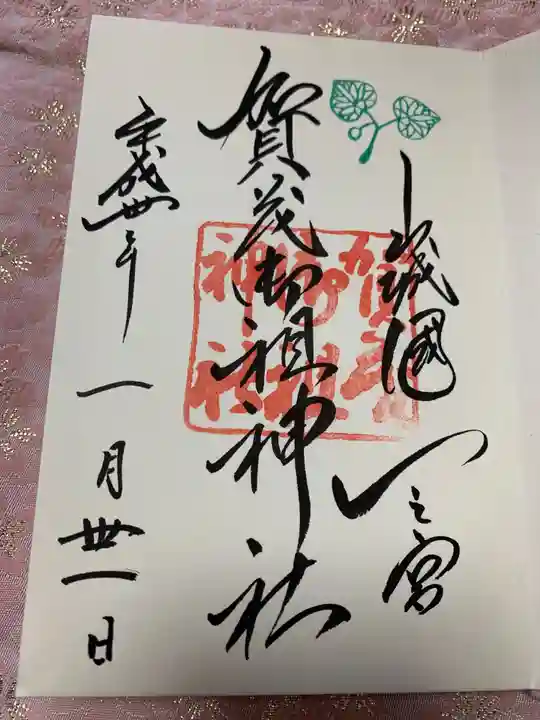 山城國一之宮
賀茂御祖神社
平成卅一年一月卅一日
賀茂
御祖
神社